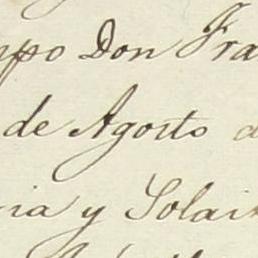 mpo Don Fra
de Agosto d
ia y Solar